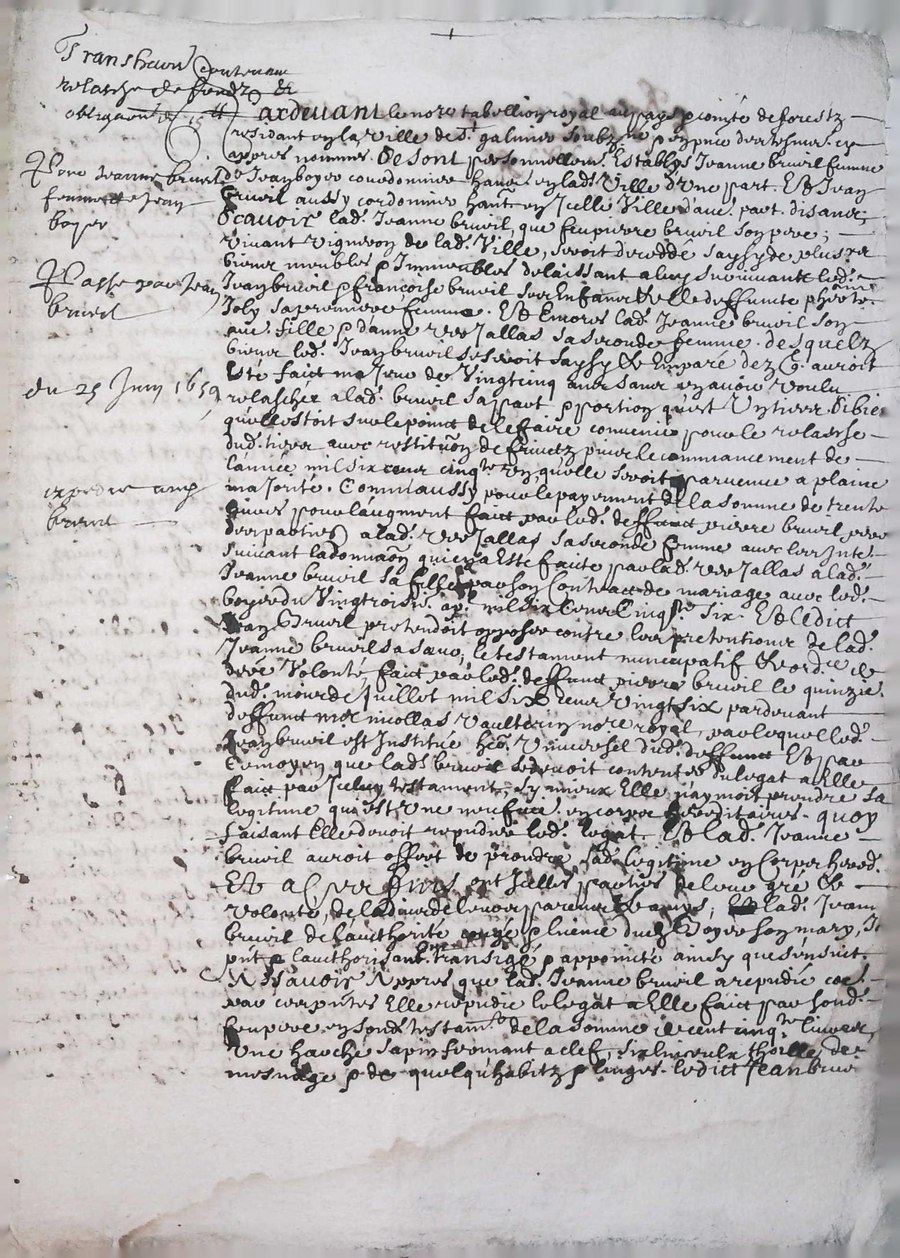 Transaction contenant
relasche de fondz &
obligaon de 15 ll
Pour Jeanne brueil
femme de Jean
boyer
Passé par Jean
brueil
du 25 Juin 1659
expedie aud
brueil
Pardevant le note tabellion royal au pays & comté de forestz
residant en la ville de St galmier soubzne & en pnce des tesmoingz cy
appres nommes. Se sont personnellemt Establys Jeanne brueil femme
de Jean boyer courdonnier hant en lad. Ville d'une part. Et Jean
Brueil aussy cordonnier hant en Icelle Ville d'aue. part. disans,
Scavoir lad. Jeanne brueil, que feu pierre brueil son pere,
vivant vigneron de lad. Ville, seroit decedé saysy de plusrs
biens meubles & Immeubles delaissant a luy survivants led.
Jean brueil & françoise brueil ses Enfans & de deffuncte
Joly sa premiere femme. Et Encores lad. Jeanne brueil son
aue. fille & danne Jallas sa seconde femme. desquelz
biens led. Jean brueil se seroit saysy & Emparé dez qu'auroit
Esté faict majeur de Vingtcinq ans sans en avoir voulu
relascher a lad. brueil sa part & portion qu'est Un tiers. Sibien
qu'elle estoit sur le poinct de le faire convenir pour le relasche
dud. tiers avec restituon de fruictz puis le commancement de
l'année mil six cens cinqte un, qu'elle seroit parvenue a plaine
majorité. Comm'aussy pour le payement de la somme de trente
livres pour l'augment faict par led. deffunct pierre brueil
a lad. Jallas sa seconde femme avec les Inte.
suivant la donnaon qui en a Esté faicte par lad. Jallas a lad.
Jeanne brueil sa fille, par son Contract de mariage avec led.
boyer du Vingtroisie. ap. mil six Cens Cinqte six. Et ledict
Jean Brueil pretendoit opposer contre les pretentions de lad.
Jeanne brueil sa sœur, le testament nuncupatif & ordce de
dere Volonté, faict par led. deffunct pierre brueil le quinzie.
dud. mois de Juillet mil six cens Vingt six pardevant
deffunct me nicollas Vaulterin note royal, par lequel led.
Jean brueil est Institué her. Universel dud. deffunct Et par
ce moyen que lad. brueil se devoit contenter du legat a Elle
faict par Icelluy testament, sy mieux Elle n'aymoit prendre sa
legitime qui est Une en corps hereditaires. quoy
faisant Elle devoit repudier led. legat. Et lad. Jeanne
brueil auroit offert de prendre sad. legitime en Corps hered.
Et a l'
ont Icelles parties de leur gré &
volonté, de l'advis de leurs parens & amys, lad. Jeanne
brueil de l'aucthorité congé & licence dud. Boyer son mary,
pnt & l'aucthorisant transigé & appointé ainsy que s'ensuict.
A Scavoir Appres que lad. Jeanne brueil a repudié
par ces pntes Elle repudie le legat a Elle faict par sond.
feu pere en sond. testamt. de la somme de cent cinqte livres,
Une hasche sapin fermant a clef, six linceulx thoille de
mesnage & de quelqu'habitz & linges. ledict Jean brue